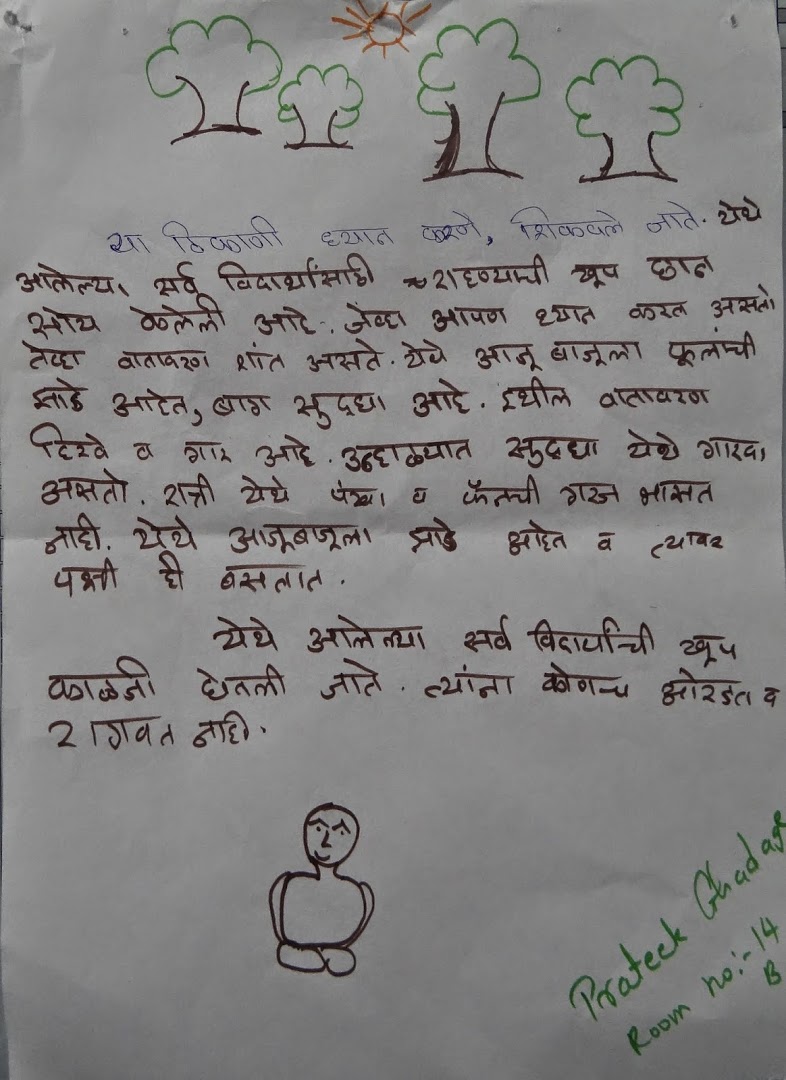 या ठिकाणी ध्यान करणे, शिकवले जाते. येथे
आलेल्या सर्व विदार्थ्यांसाठी राहण्याची खूप छान
सोय केलेली आहे. जेव्हा आपण ध्यान करत असतो
तेव्हा वातावरण शांत असते. येथे आजू बाजूला फूलांची
झाडे आहेत, बाग सुद्धा आहे. इथील वातावरण
हिरवे व गार आहे. उन्हाळ्यात सुद्धा येथे गारवा
असतो. रात्री येथे पंखा व फॅनची गरज भासत
नाही. येथे आजूबाजूला झाडे आहेत व त्यावर
पक्षी ही बसतात.
येथे आलेल्या सर्व विदार्थ्यांची खूप
काळजी घेतली जाते. त्यांना कोणच ओरडत व
रागवत नाही.
Prateek Ghadage
Room no:- 14
B